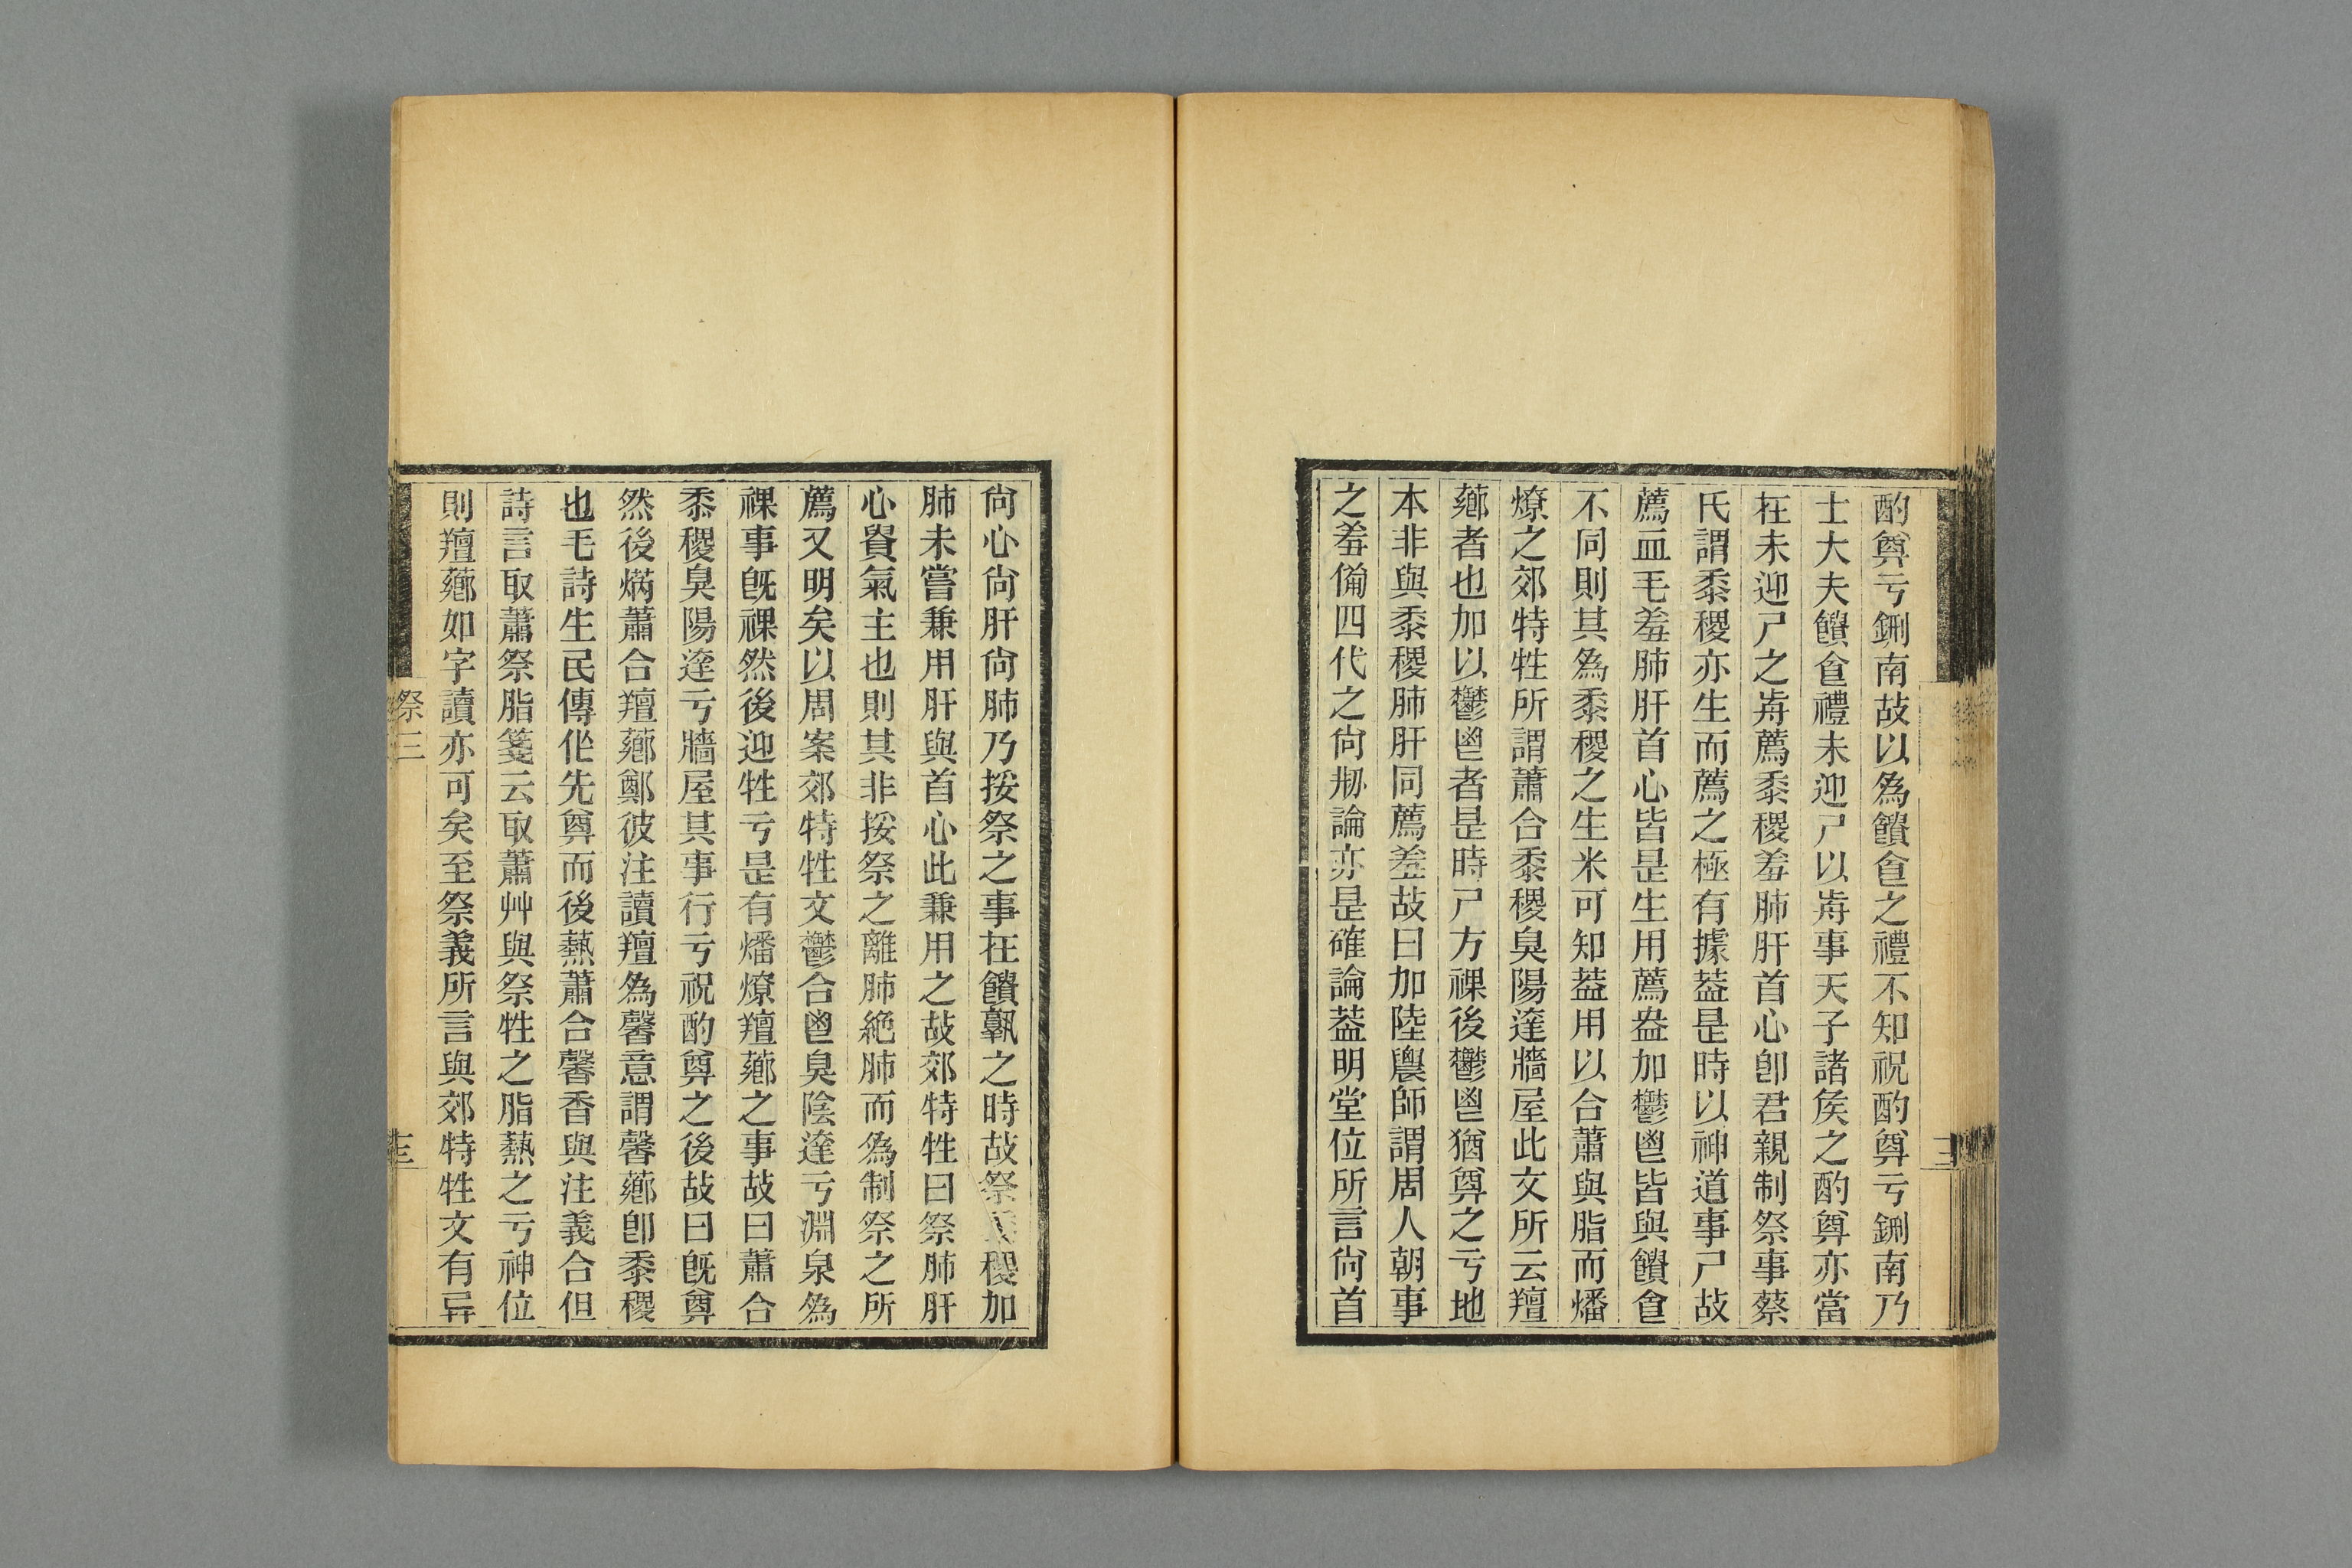 酌奠亏鉶南故以為饋𠊊之禮不知祝酌奠亏鉶南乃
士大夫饋𠊊禮未迎尸以歬事天子諸矦之酌奠亦當
在未迎尸之歬薦黍稷羞肺肝首心卽君親制祭事蔡
氏謂黍稷亦生而薦之極有據葢是時以神道事尸故
薦血毛羞肺肝首心皆是生用薦盎加鬱鬯皆與饋𠊊
不同則其為黍稷之生米可知葢用以合蕭與脂而燔
燎之郊特牲所謂蕭合黍稷臭陽達牆屋此文所云羶
薌者也加以鬱鬯者是時尸方祼後鬱鬯猶奠之亏地
本非與黍稷肺肝同薦羞故曰加陸農師謂周人朝事
之羞僃四代之尙剙論亦是確論葢明堂位所言尙首
尙心尙肝尙肺乃挼祭之事在饋孰之時故祭黍稷加
肺未嘗兼用肝與首心此兼用之故郊特牲曰祭肺肝
心貴氣主也則其非挼祭之離肺絶肺而為制祭之所
薦又明矣以周案郊特牲文鬱合鬯臭陰達亏淵泉為
祼事旣祼然後迎牲亏是有燔燎羶薌之事故曰蕭合
黍稷臭陽達亏牆屋其事行亏祝酌奠之後故曰旣奠
然後焫蕭合羶薌鄭彼注讀羶為馨意謂馨薌卽黍稷
也毛詩生民傳作先奠而後爇蕭合馨香與注義合但
詩言取蕭祭脂箋云取蕭艸與祭牲之脂爇之亏神位
則羶薌如字讀亦可矣至祭義所言與郊特牲文有异
祭三
十三